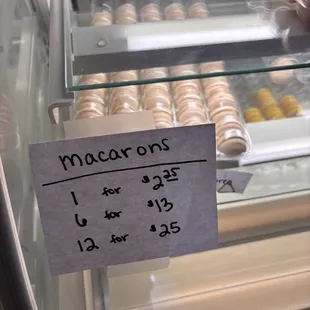 macarons
1 for $2.25
6 for $13
12 for $25